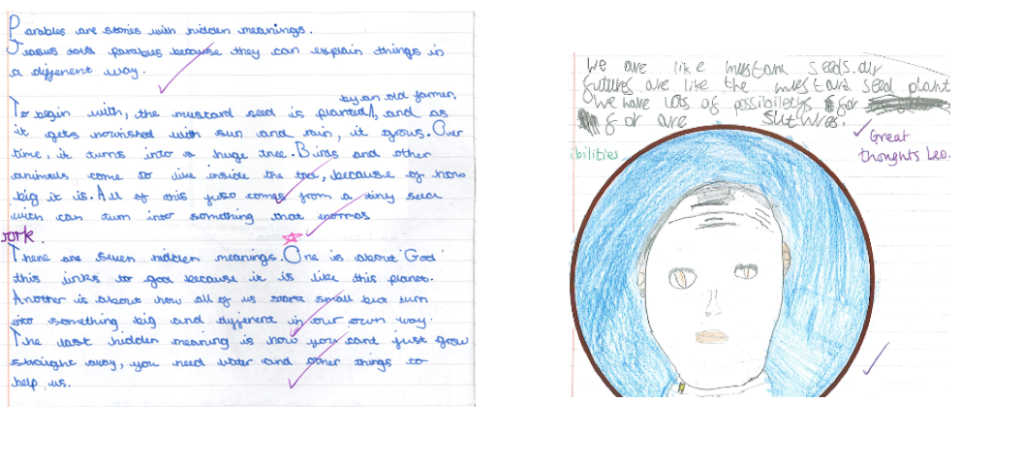 Parables are stories with hidden meanings.
Jesus told parables because they can explain things in
a different way.
by an old farmer,
To begin with, the mustard seed is planted, and as
it gets nourished with sun and rain, it grows. Over
time, it turns into a huge tree. Birds and other
animals come to live inside the tree, because of how
big it is. All of this just comes from a tiny seed
with can turn into something that enormas
work.
There are seven hidden meanings. One is about 'God'
this links to god because it is like this planet.
Another is about how all of us start small but turn
into something big and different in our own way.
The last hidden meaning is how you cant just grow
straight away, you need water and other things to
help us.
We are like mustard seeds. our
futures are like the mustard seed plant
we have lots of possibiletys for
for are
Great
thoughts Leo.
ibilities